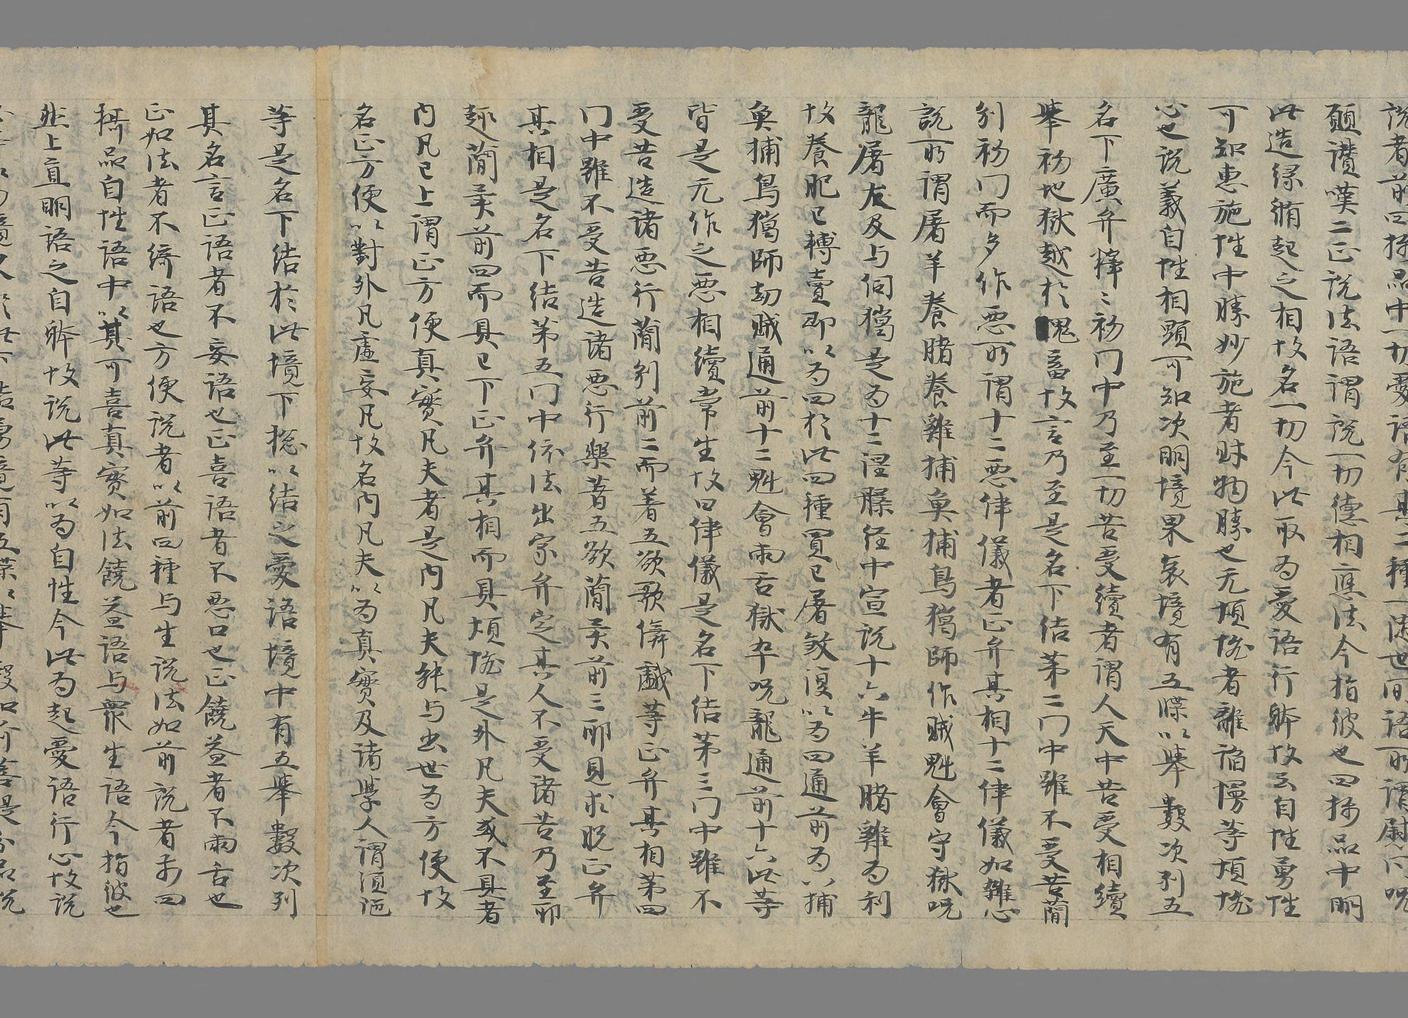 說者前四攝品中一切愛語有其二種一隨世間語所謂慰問呪
願讚嘆二正說法語謂說一切德相應法今指彼也四攝品中明
此造緣循起之相故名一切今此取為愛語行躰故云自性勇性
可知惠施性中勝妙施者財物勝也无煩惱者離諂慢等煩惱
心也說義自性相顯可知次明境界哀境有五牒以舉數次列五
名下廣弁釋之初門中乃至一切苦受續者謂人天中苦受相續
舉初地獄越於鬼畜故言乃至是名下結第二門中雖不受苦簡
別初門而多作惡所謂十二惡律儀者正弁其相十二律儀如雜心
說所謂屠羊養賭養雞捕魚捕鳥獦師作賊魁會守獄呪
龍屠友及与伺獦是為十二涅槃經中宣說十六牛羊賭雞為利
故養肥已轉賣即以為四於此四種買已屠煞復以為四通前為八捕
魚捕鳥獦師劫賊通前十二魁會兩舌獄卒呪龍通前十六此等
皆是无作之惡相續常生故曰律儀是名下結第三門中雖不
受苦造諸惡行簡別前二而着五欲歌儛戲等正弁其相第四
門中雖不受苦造諸惡行樂著五欲簡异前三耶見求脫正弁
其相是名下結第五門中依法出家弁定其人不受諸苦乃至耶
趣簡异前四而具已下正弁其相而具煩惱是外凡夫或不具者
內凡已上謂正方便真實凡夫者是內凡夫能与出世為方便故
名正方便以對外凡虛妄凡故名內凡夫以為真實及諸學人謂須陁
等是名下結於此境下捴以結之愛語境中有五舉數次列
其名言正語者不妄語也正喜語者不惡口也正饒益者不兩舌也
正如法者不綺語也方便說者以前四種与生說法如前說者前四
攝品自性語中以其可喜真實如法饒益語与眾生語今指彼也
然上直明語之自躰故說此等以為自性今此為起愛語行心故說